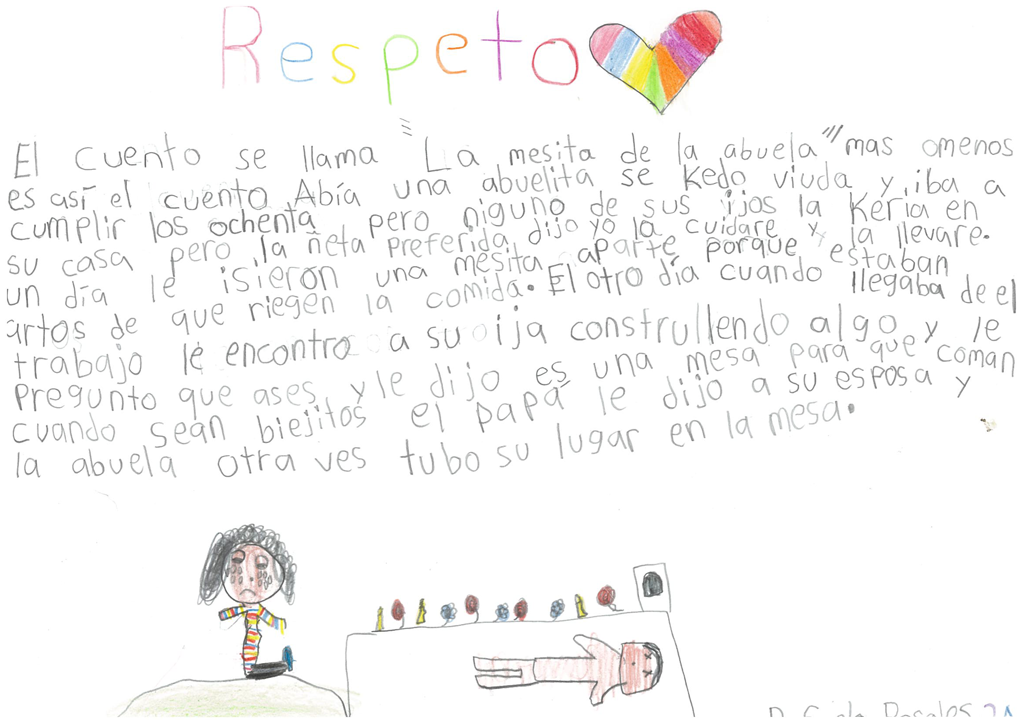 Respeto
El cuento se llama "La mesita de la abuela" mas omenos
es así el cuento Abía una abuelita se Kedo viuda y iba a
cumplir los ochenta pero niguno de sus ijos la Keria en
su casa pero la ñeta preferida dijo yo la cuidare y la llevare.
un día le isieron una mesita aparte porque estaban
artos de que riegen la comida. El otro día cuando llegaba de el
trabajo le encontro a su ija construllendo algo y le
Pregunto que ases y le dijo es una mesa para que coman
cuando sean biejitos el papá le dijo a su esposa y
la abuela otra ves tubo su lugar en la mesa.
Rosales